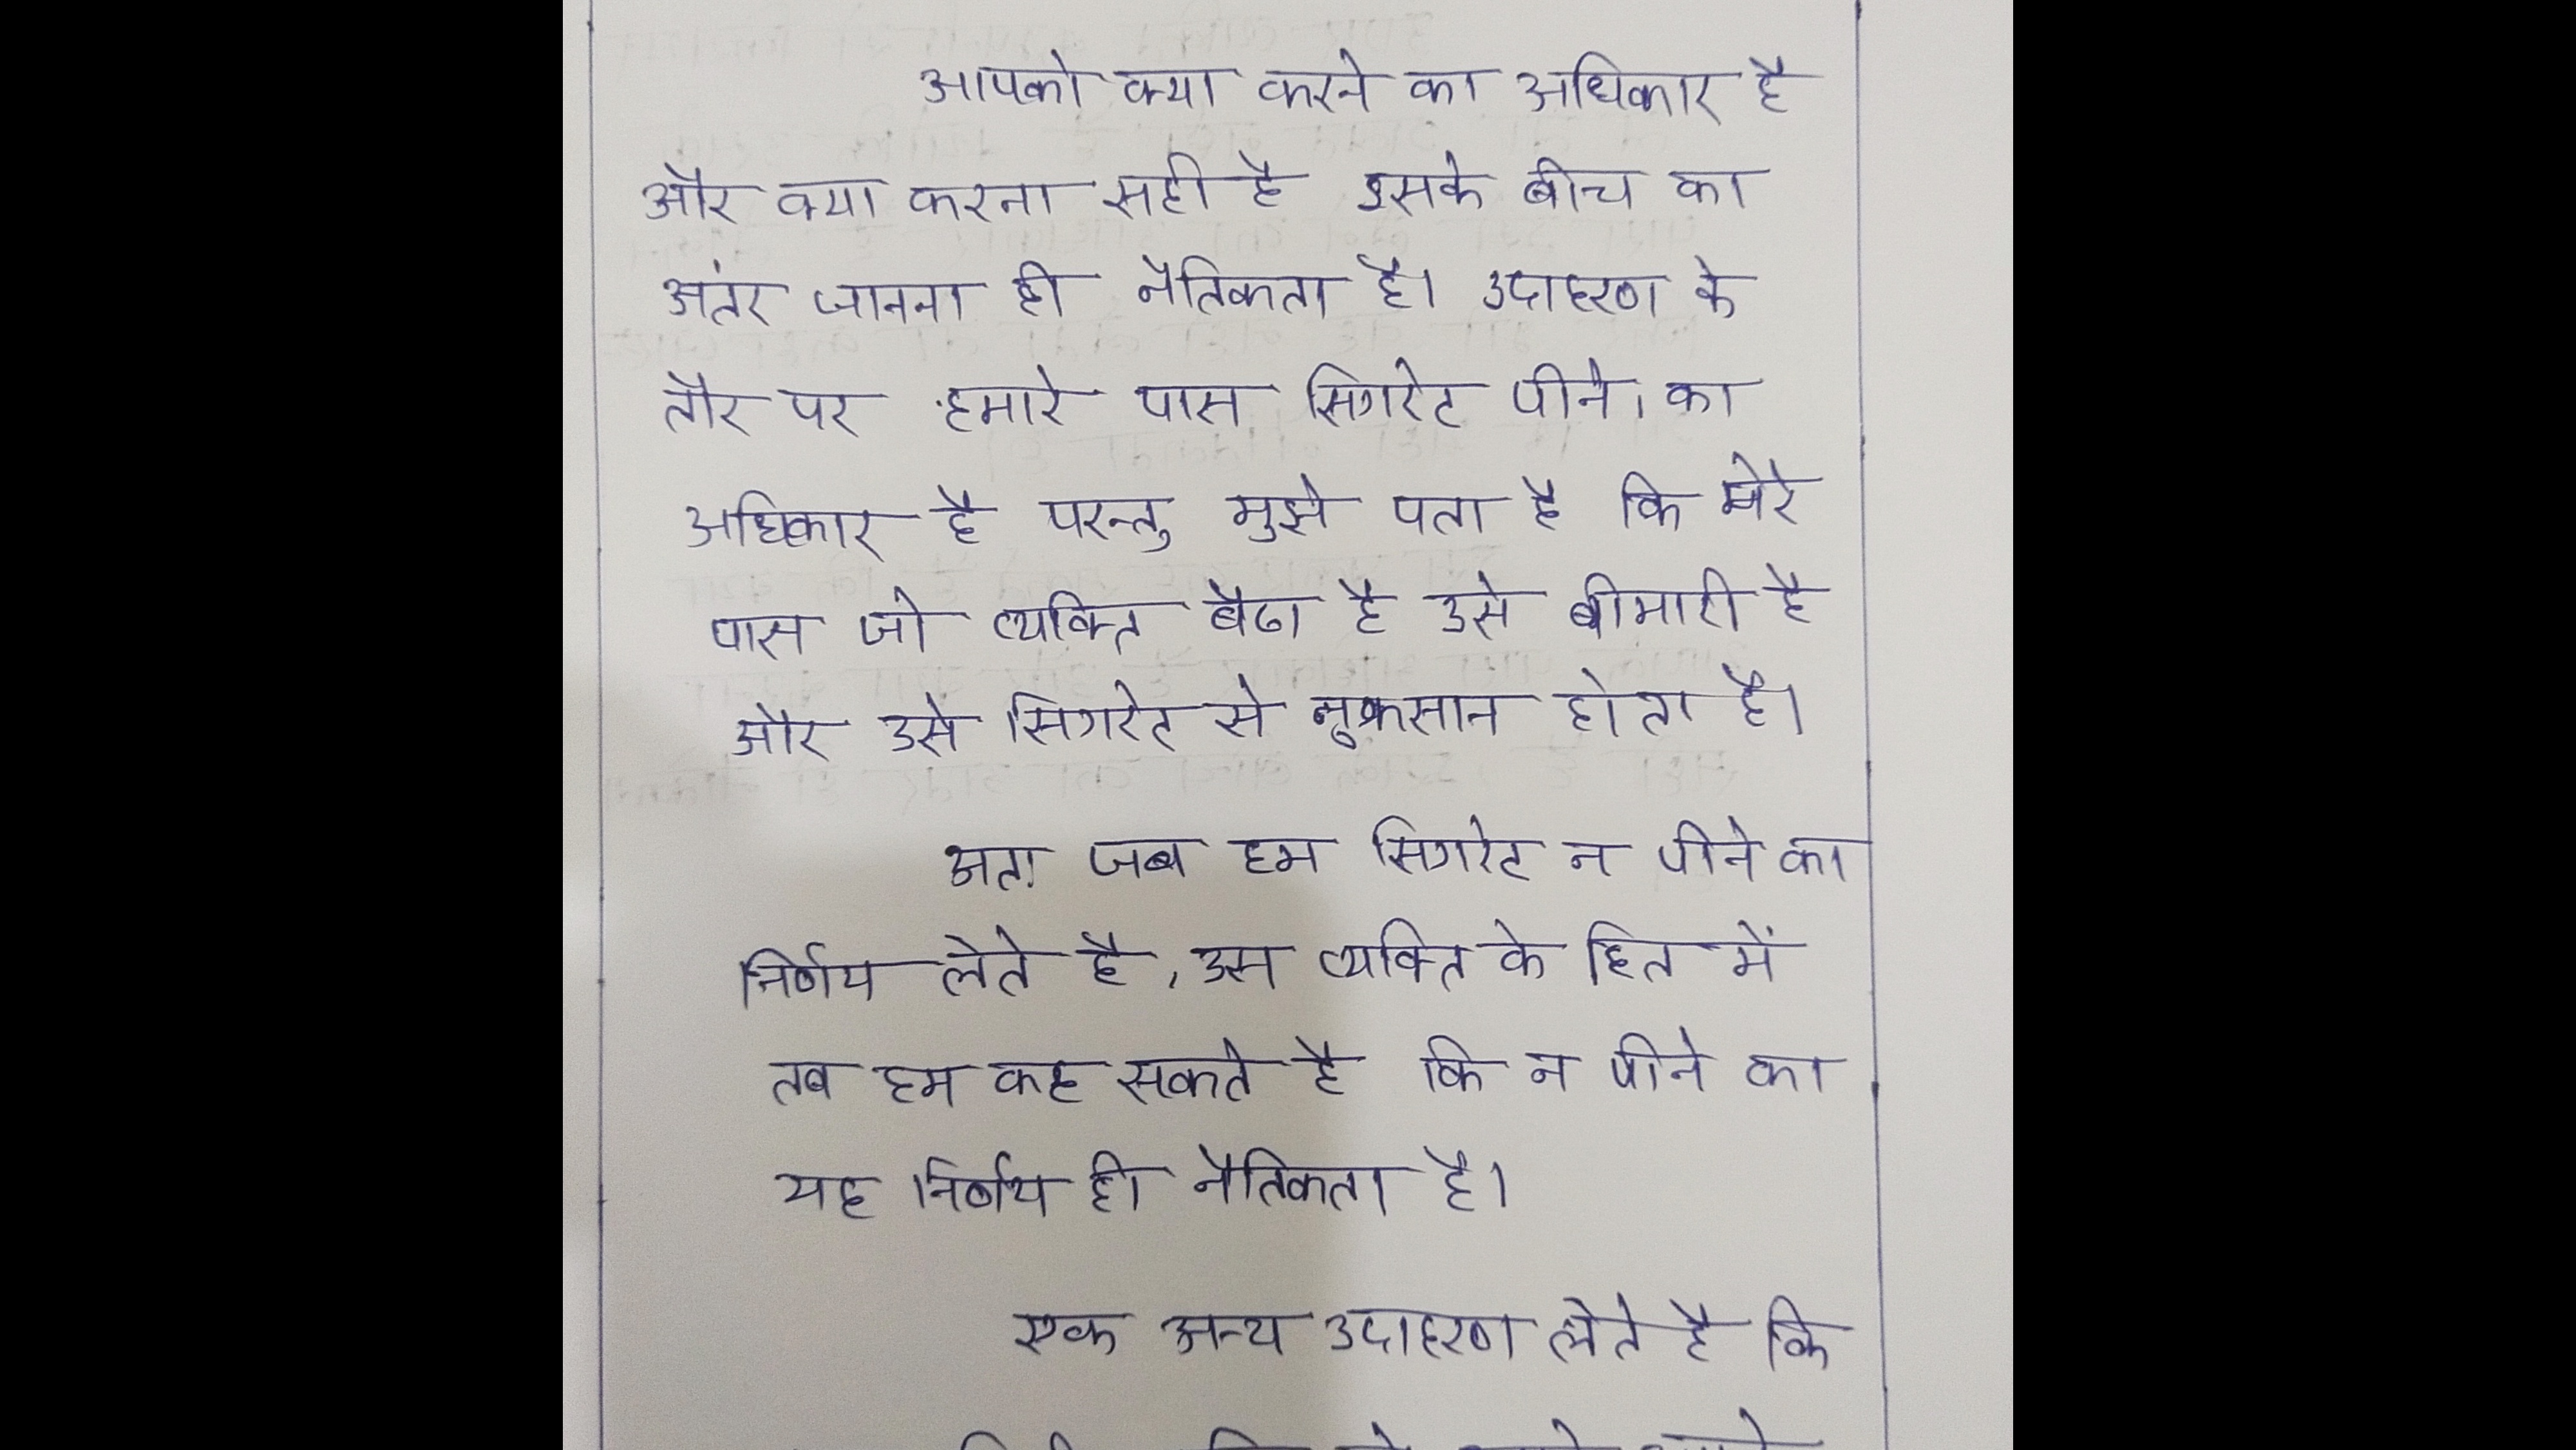 आपको क्या करने का अधिकार है
और क्या करना सही है उसके बीच का
अंतर जानना ही नैतिकता है। उदाहरण के
तौर पर हमारे पास सिगरेट पीने का
अधिकार है परन्तु मुझे पता है कि मेरे
पास जो व्यक्ति बैठा है उसे बीमारी है
और उसे सिगरेट से नुकसान होता है।
अतः जब हम सिगरेट न पीने का
निर्णय लेते है, उस व्यक्ति के हित में
तब हम कह सकते है कि न पीने का
यह निर्णय ही नैतिकता है।
एक अन्य उदाहरण लेते है कि